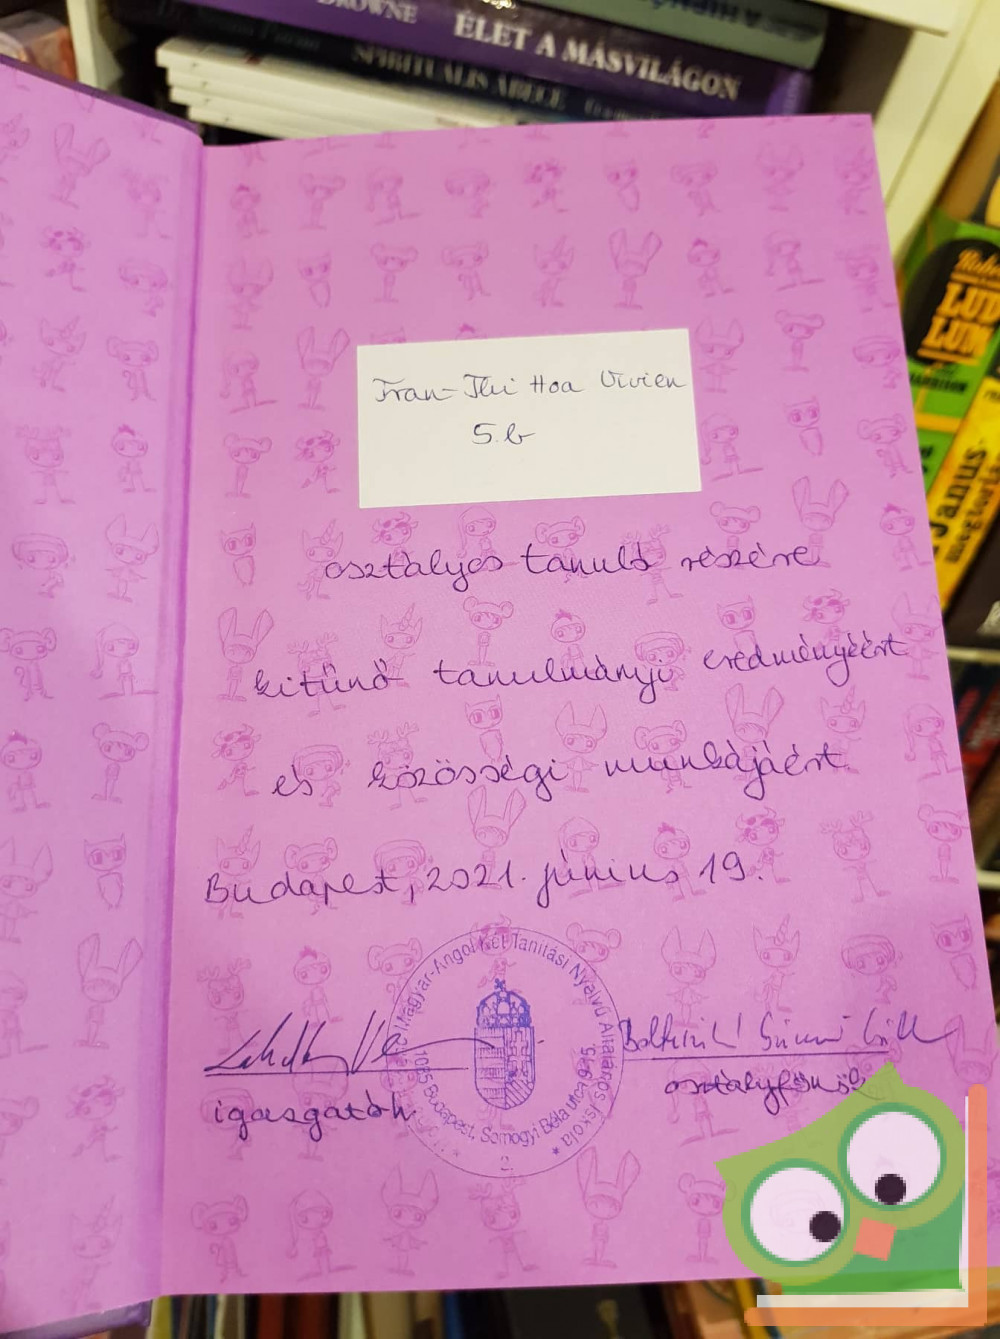 ÉLET A MÁSVILÁGON
SPIRITUÁLIS ÁBÉCÉ
Tran-Thi Hoa Vivien
5.b
osztályos tanuló részére
kitünő tanulmányi eredményéért
és közösségi munkájáért.
Budapest, 2021. június 19.
Magyar-Angol Két Tanítási Nyelvű Általános Iskola
Budapest, Somogyi Béla utca 9-15.
2.
igazgatóh.
osztályfőnök
LUD
LUM
Janus-